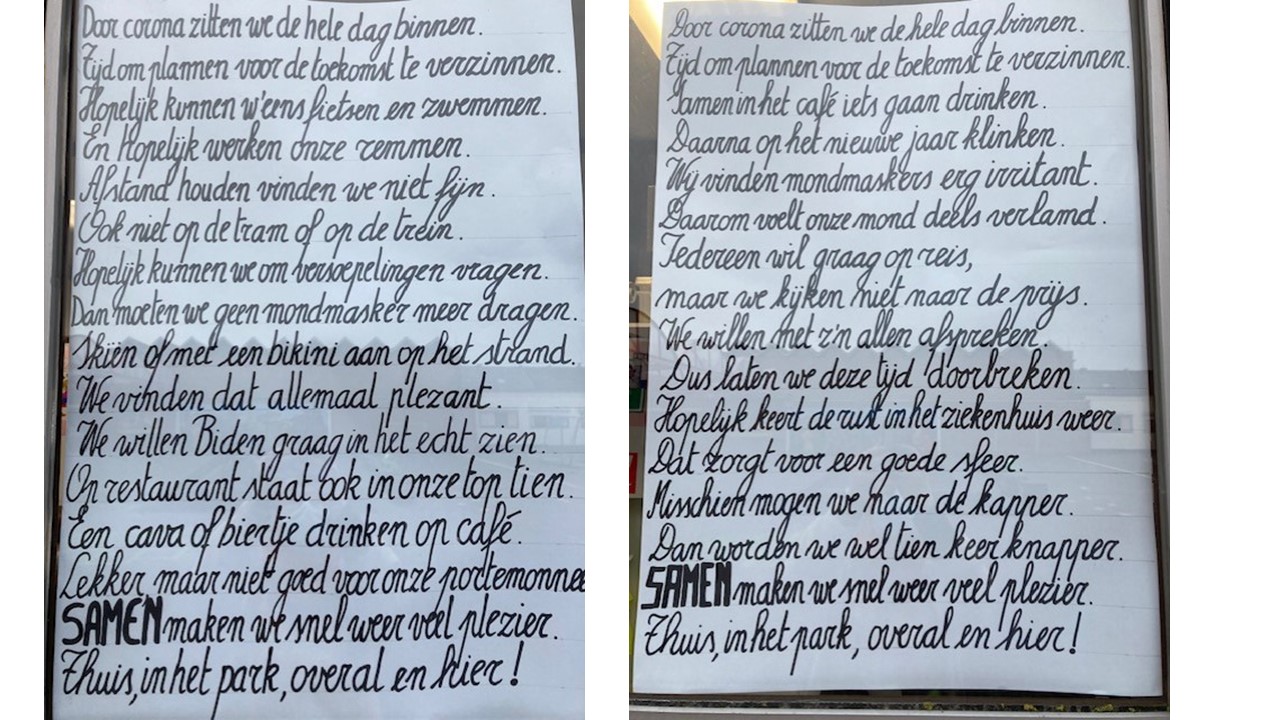 Door corona zitten we de hele dag binnen.
Tijd om plannen voor de toekomst te verzinnen.
Hopelijk kunnen w'eens fietsen en zwemmen.
En hopelijk werken onze remmen.
Afstand houden vinden we niet fijn.
Ook niet op de tram of op de trein.
Hopelijk kunnen we om versoepelingen vragen.
Dan moeten we geen mondmasker meer dragen.
Skiën of met een bikini aan op het strand.
We vinden dat allemaal plezant.
We willen Biden graag in het echt zien.
Op restaurant staat ook in onze top tien.
Een cava of biertje drinken op café.
Lekker, maar niet goed voor onze portemonnee
SAMEN maken we snel weer veel plezier.
Thuis, in het park, overal en hier!
Door corona zitten we de hele dag binnen.
Tijd om plannen voor de toekomst te verzinnen.
Samen in het café iets gaan drinken.
Daarna op het nieuwe jaar klinken.
Wij vinden mondmaskers erg irritant.
Daarom voelt onze mond deels verlamd.
Iedereen wil graag op reis,
maar we kijken niet naar de prijs.
We willen met z'n allen afspreken.
Dus laten we deze tijd 'doorbreken.
Hopelijk keert de rust in het ziekenhuis weer.
Dat zorgt voor een goede sfeer.
Misschien mogen we naar de kapper.
Dan worden we wel tien keer knapper.
SAMEN maken we snel weer veel plezier.
Thuis, in het park, overal en hier!